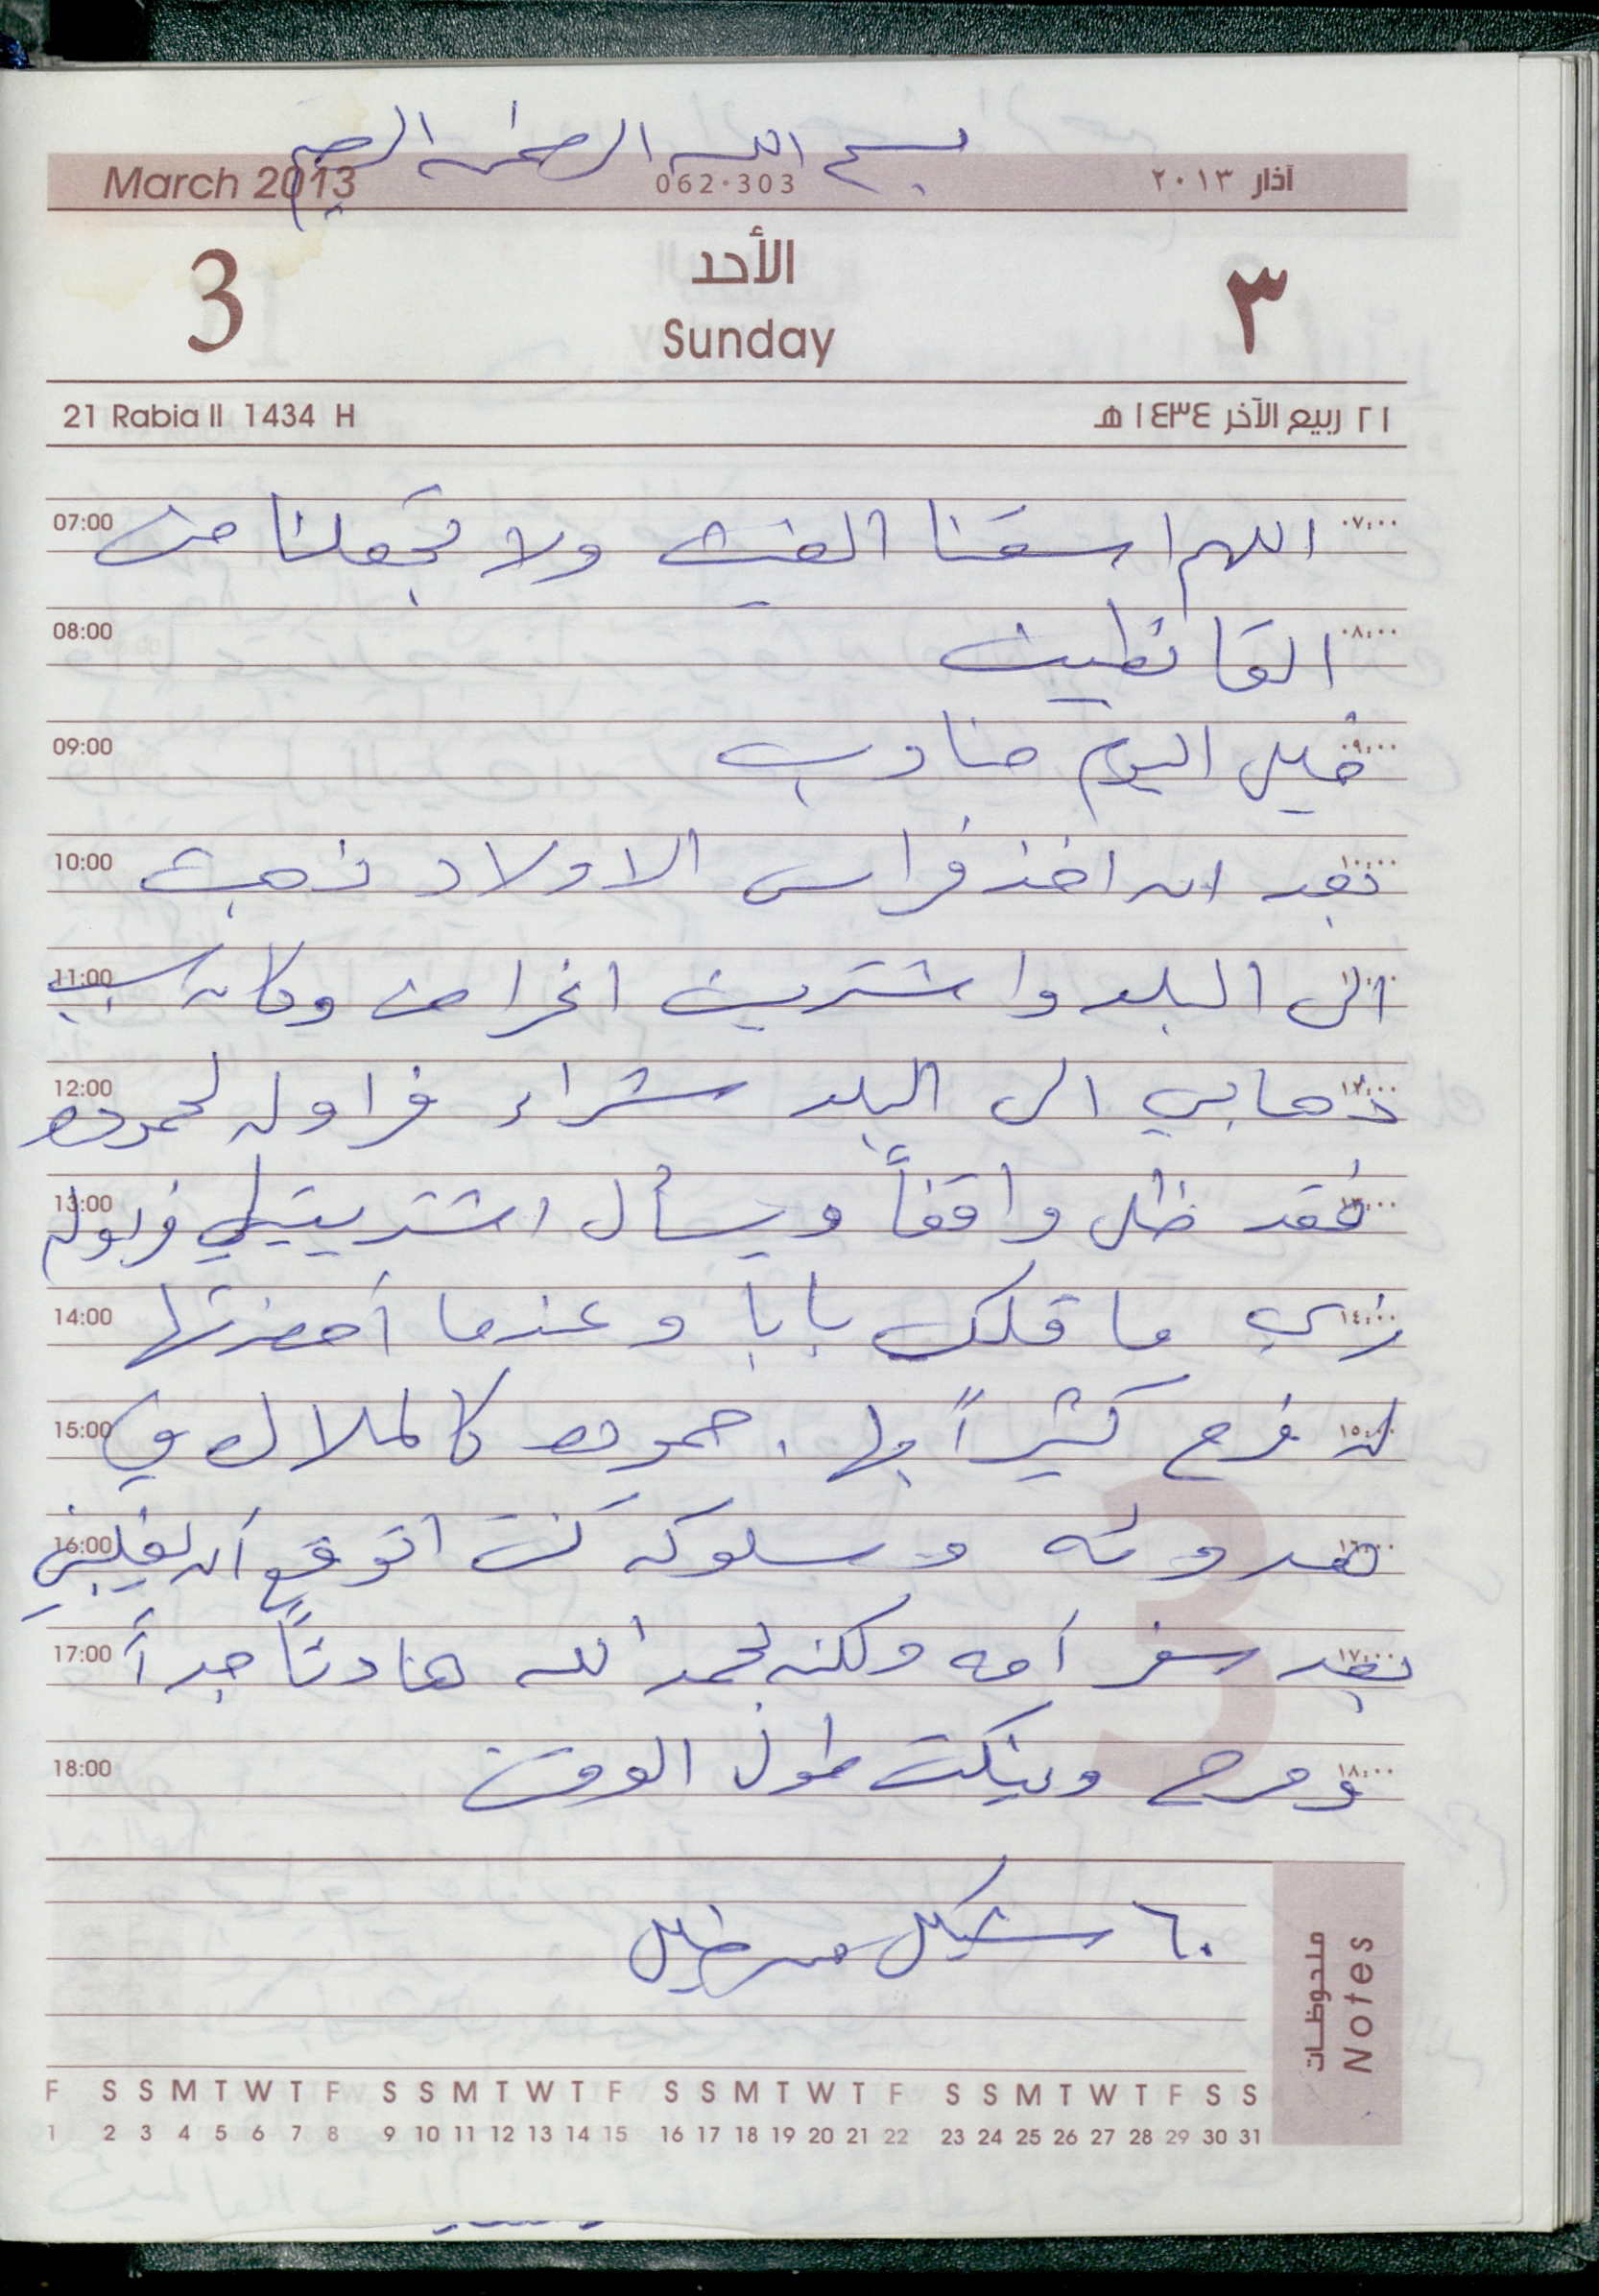 بسم الله الرحمن الرحيم
March 2013 062·303 آذار ٢٠١٣
3 الأحد ٣
Sunday
21 Rabia II 1434 H ٢١ ربيع الآخر ١٤٣٤ هـ
07:00 اللهم اسقنا الغيث ولا تجعلنا من ٠٧:٠٠
08:00 القانطين ٠٨:٠٠
09:00 خليل اليوم مناوب ٠٩:٠٠
10:00 بعد ان اخذ فراس الاولاد ذهبت ١٠:٠٠
11:00 الى البلد واشتريت اغراض وكان سبب ١١:٠٠
12:00 ذهابي الى البلد شراء فراوله لحموده ١٢:٠٠
13:00 فقد ظل واقفاً ويسأل اشتريتيلي فربوله ١٣:٠٠
14:00 زي ما قلك بابا وعندما أحضرتها ١٤:٠٠
15:00 له فرح كثيراً بها. حموده كالملاك في ١٥:٠٠
16:00 هدوئه وسلوكه كنت اتوقع أن يغلبني ١٦:٠٠
17:00 بعد سفر أمه ولكنه بحمد الله هادئاً جداً ١٧:٠٠
18:00 ومرح وينكت طول الوقت ١٨:٠٠
٦٠ شيكل من خليل
ملحوظات
Notes
F S S M T W T F S S M T W T F S S M T W T F S S M T W T F S S
1 2 3 4 5 6 7 8 9 10 11 12 13 14 15 16 17 18 19 20 21 22 23 24 25 26 27 28 29 30 31